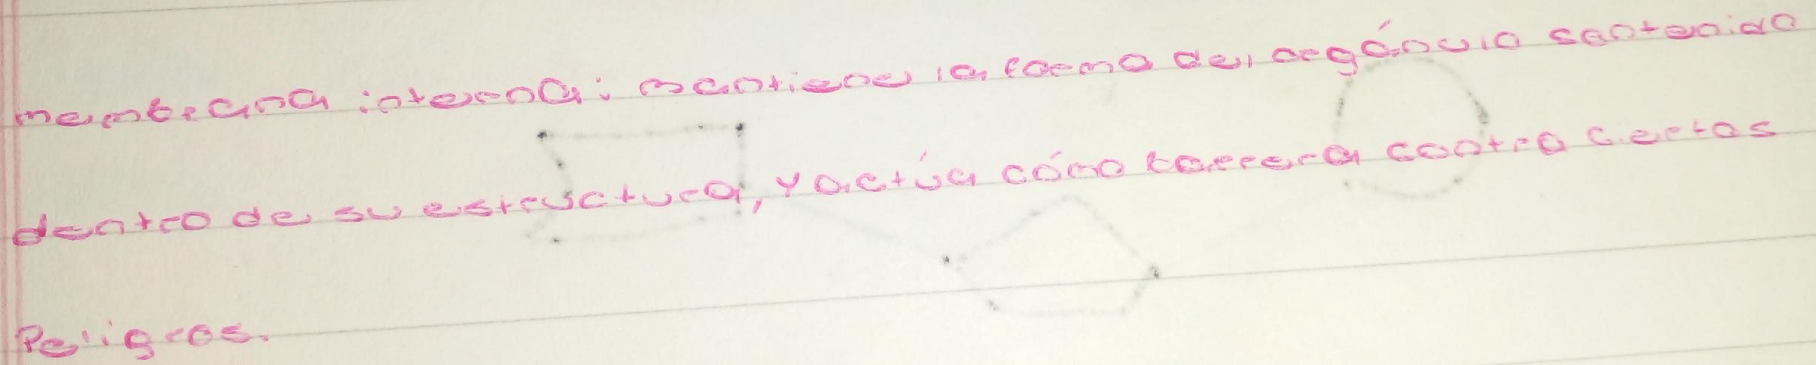 membrana interna: mantiene la forma del orgánulo santenido
dentro de su estructura, y actúa cómo barrera contra ciertos
Peligros.